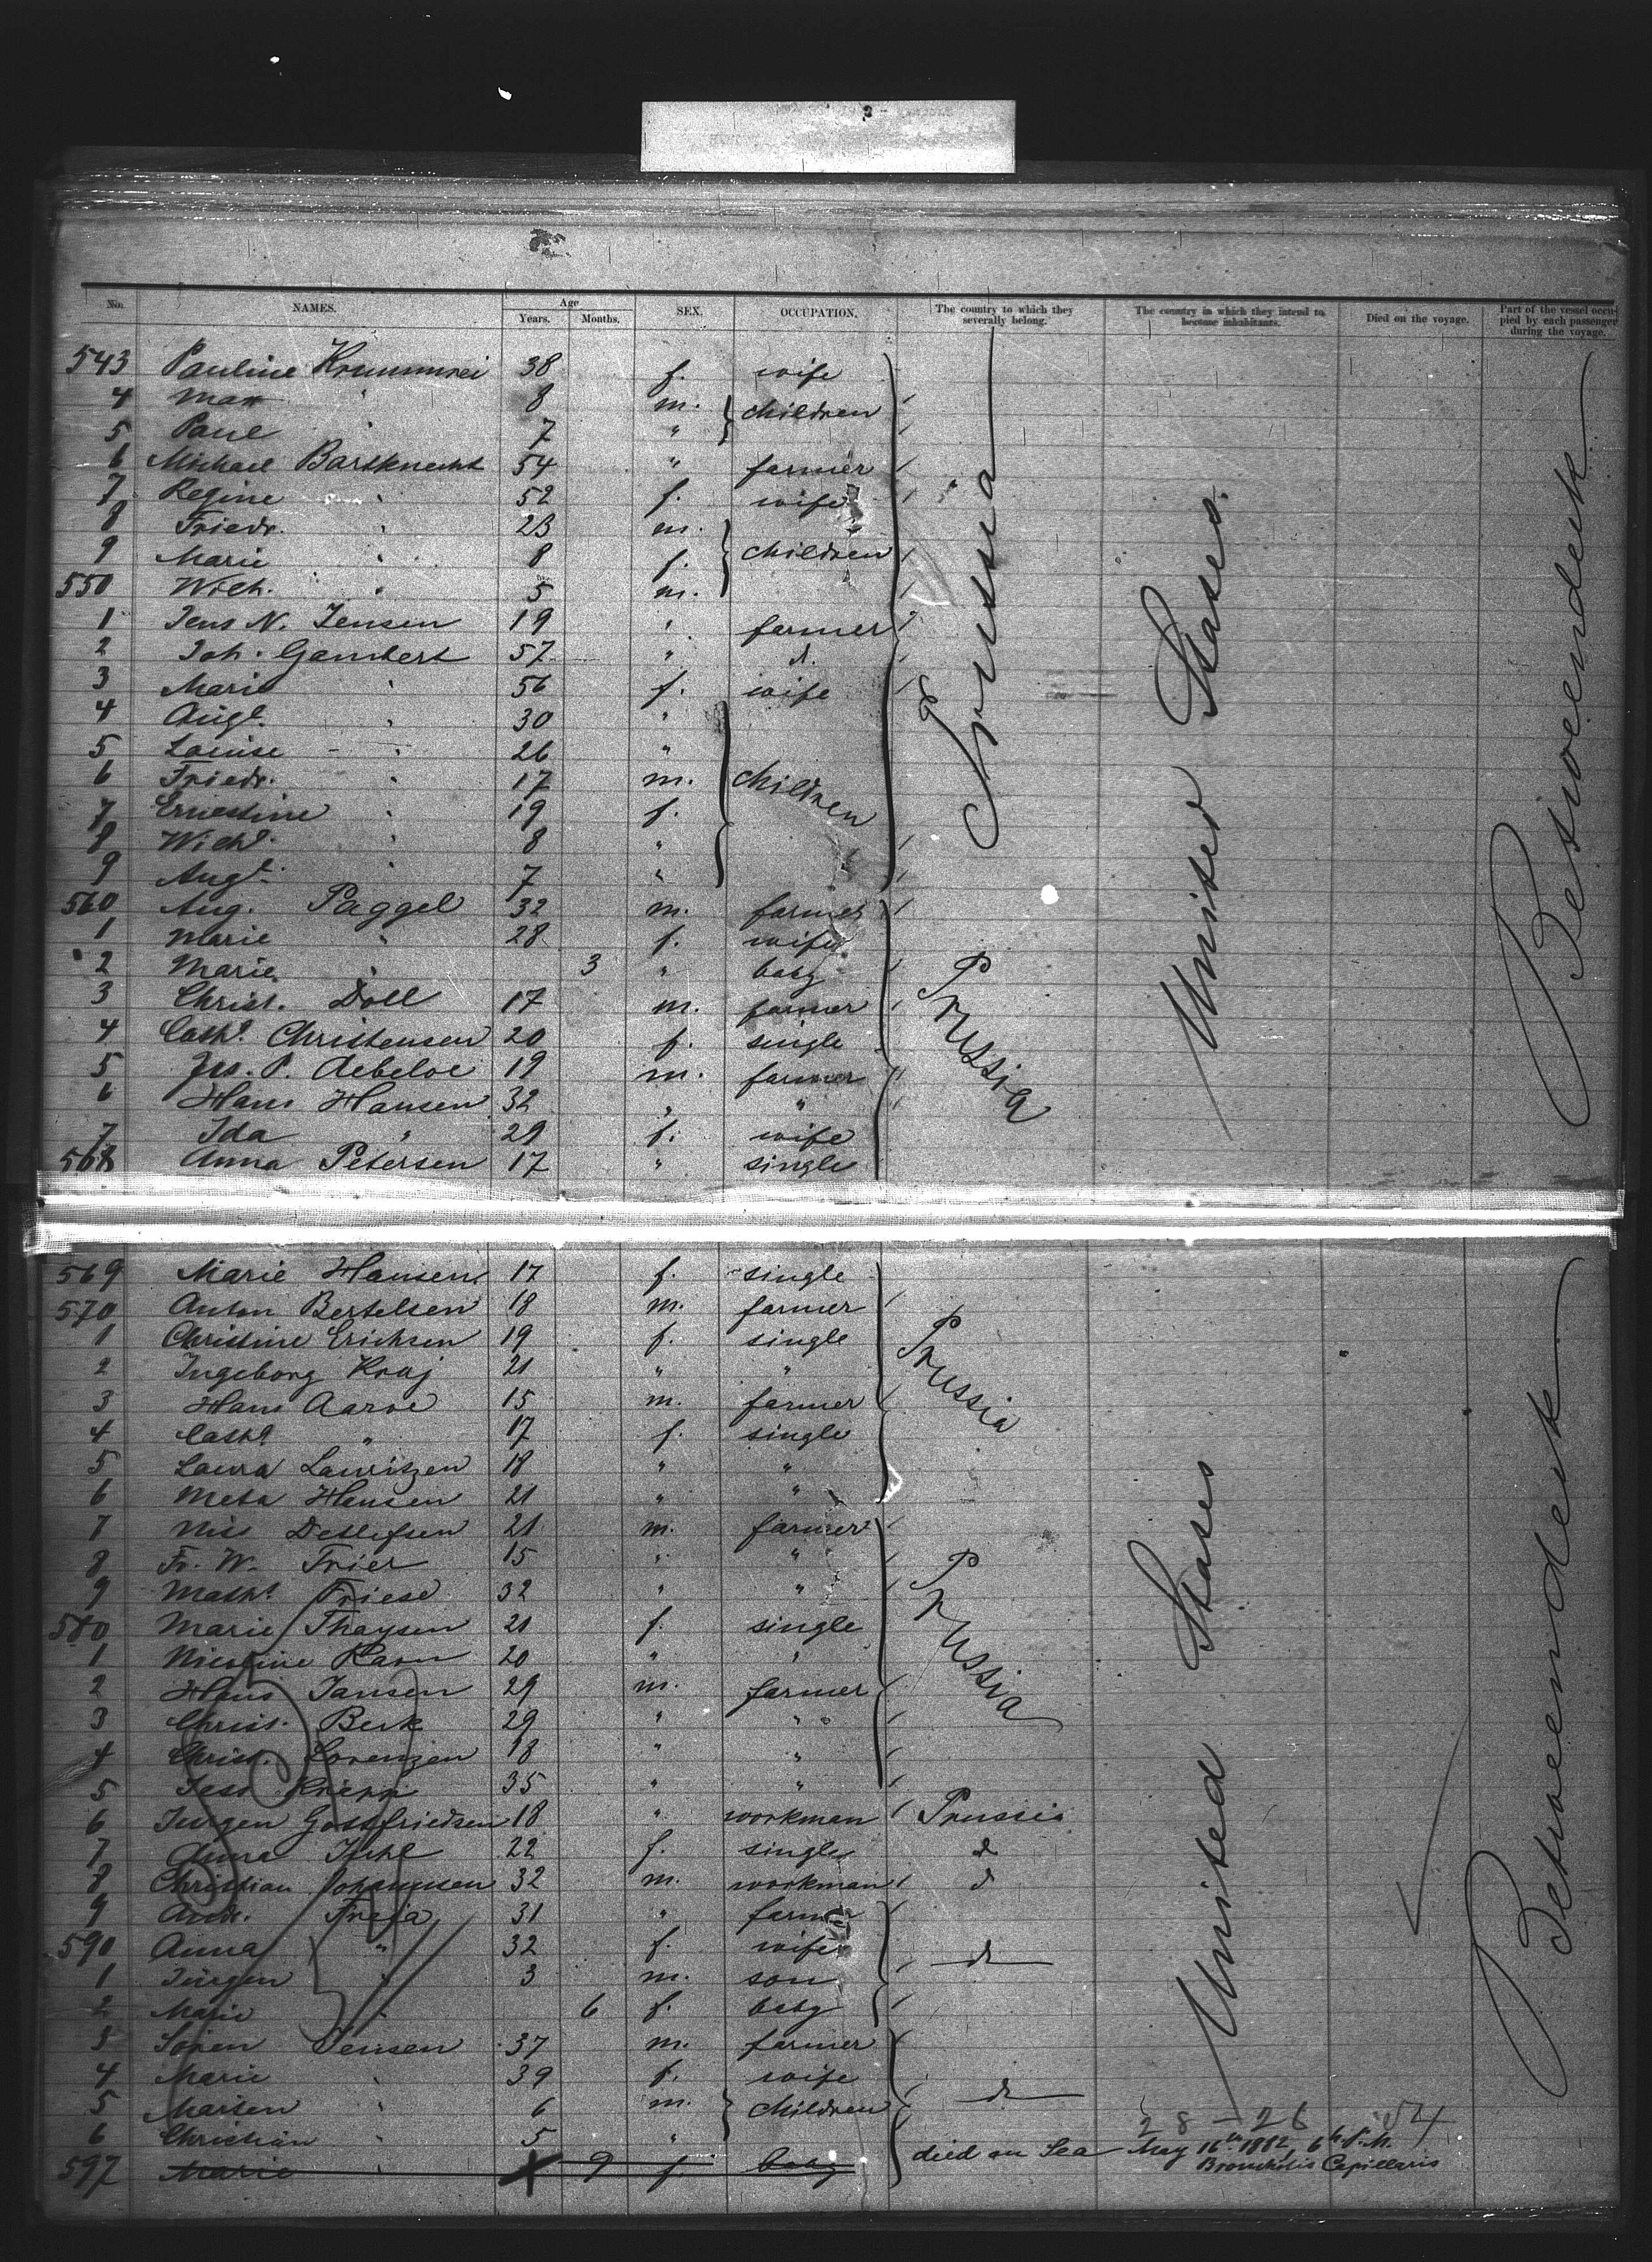 No. NAMES. Age Years. Months. SEX. OCCUPATION. The country to which they severally belong. The country in which they intend to become inhabitants. Died on the voyage. Part of the vessel occupied by each passenger during the voyage.
543 Pauline Krummrei 38 f. wife
4 Max " 8 m. children
5 Paul 7 "
6 Michael Bartknecht 54 " farmer
7 Regine " 52 f. wife
8 Friedr. " 23 m.
9 Marie " 8 f. children
550 Wilh. " 5 m.
1 Jens N. Jensen 19 " farmer
2 Joh. Gambert 57 " d.
3 Marie " 56 f. wife
4 Augt. " 30 "
5 Louise " 26 "
6 Friedr. " 17 m. children
7 Ernestine " 19 f.
8 Wilh. " 8 "
9 Augt. " 7 "
Prussia
United States.
Betweendenk
560 Aug. Paggel 32 m. farmer
1 Marie " 28 f. wife
2 Marie " 3 " baby
3 Christ. Doll 17 m. farmer
4 Cath. Christensen 20 f. single
5 Jes. P. Aebeloe 19 m. farmer
6 Hans Hansen 32 " "
7 Ida " 29 f. wife
568 Anna Petersen 17 " single
Prussia
569 Marie Hansen 17 f. single
570 Anton Bertelsen 18 m. farmer
1 Christine Erichsen 19 f. single
2 Ingeborg Kraj 21 " "
3 Hans Aaroe 15 m. farmer
4 Cath. " 17 f. single
5 Laura Lauritzen 18 " "
6 Meta Hansen 21 " "
Prussia
7 Nis Detlefsen 21 m. farmer
8 Fr. W. Frier 15 " "
9 Math. Friese 32 " "
580 Marie Thaysen 21 f. single
1 Nicoline Ravn 20 " "
2 Hans Jansen 29 m. farmer
3 Christ. Beck 29 " "
4 Christ. Lorenzen 18 " "
5 Jess 35 " "
Prussia
6 Jurgen Gottfriedsen 18 " workman Prussia
7 Anna Juhl 22 f. single d
8 Christian Johannsen 32 m. workman d
9 Andr. Freja 31 " farmer
590 Anna " 32 f. wife d
1 Jürgen " 3 m. son
2 Marie " 6 f. baby
3 Soren Jensen 37 m. farmer
4 Marie " 39 f. wife
5 Marten " 6 m. children d
6 Christian " 5 "
United States
Betweendenk
28 - 26 54
597 Marie " 9 f. baby died on Sea May 16th 1882, 6 h. P.M.
Bronchitis Capillaris